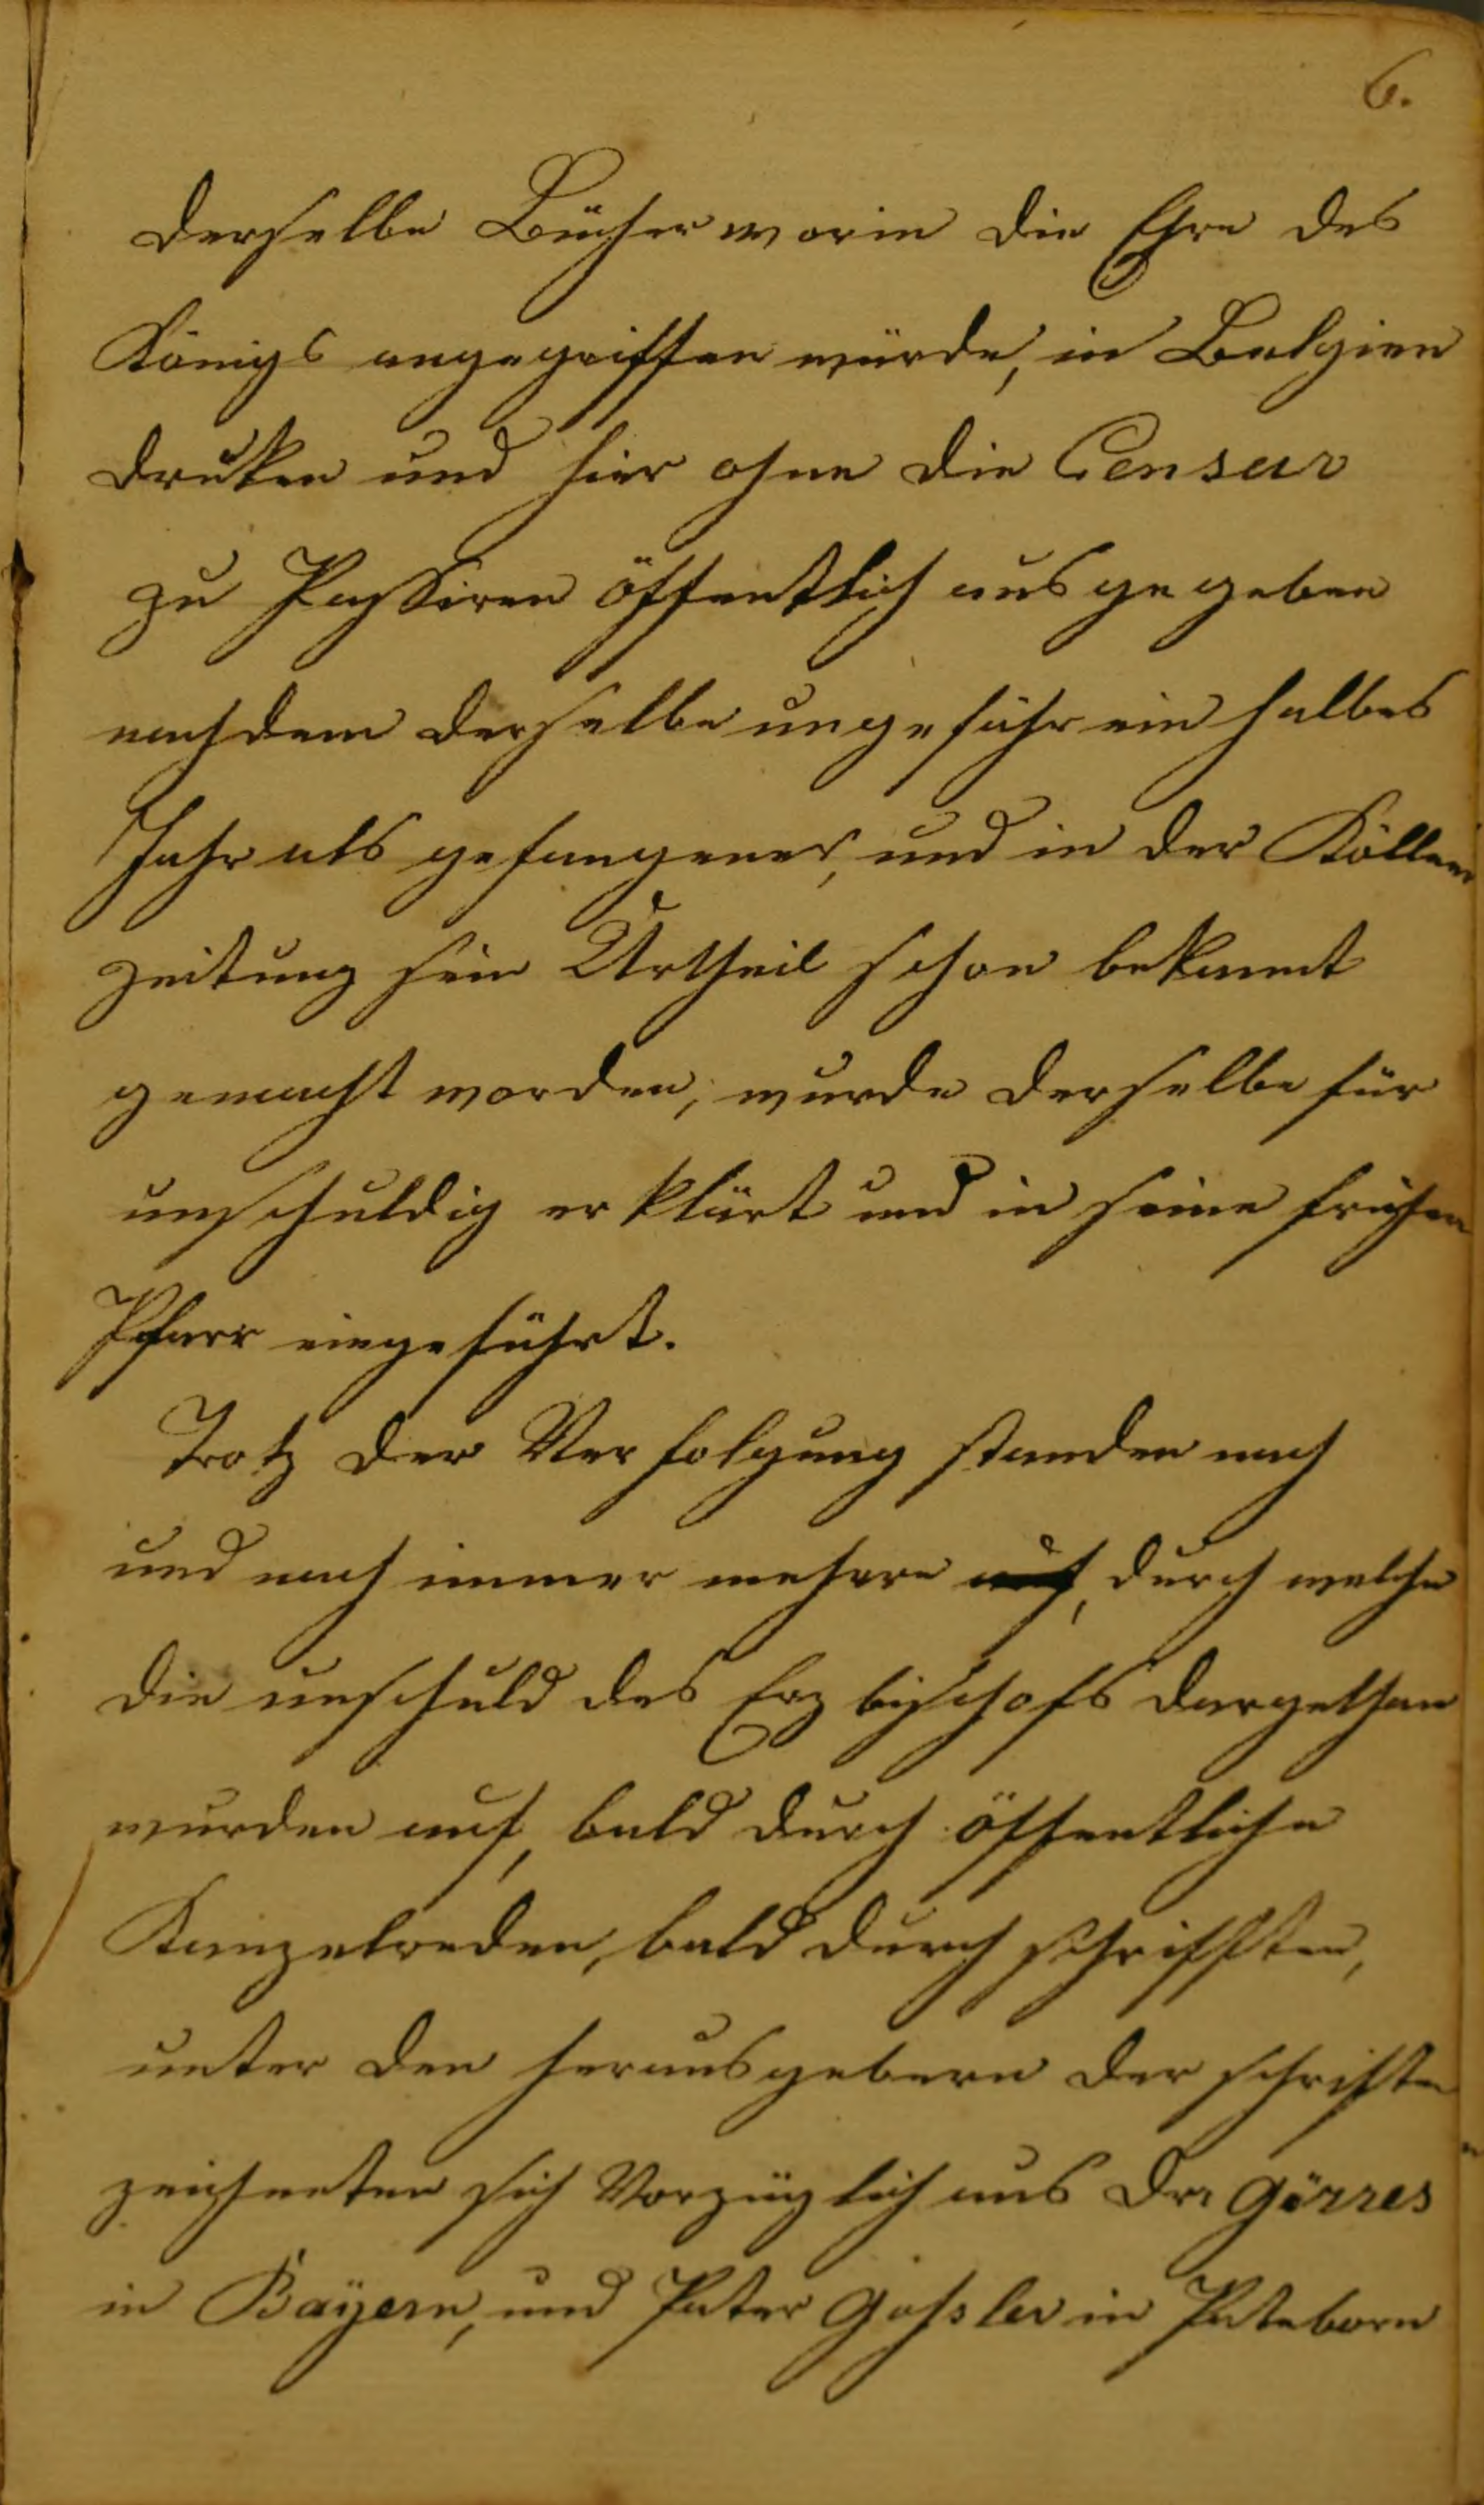 6.
derselbe Bücher worin die Ehre des
Königs angegriffen würde, in Belgien
druken und hier ohne die Censur
zu Passiren öffentlich ausgegeben
nachdem derselbe ungefähr ein halbes
Jahr als gefangener, und in der Köllner
zeitung sein Urtheil schon bekannt
gemacht worden, wurde derselbe für
unschuldig erklärt und in seine frühere
Pfarr eingeführt.
Trotz der Verfolgung standen nach
und nach immer mehere auf, durch welche
die unschuld des Erzbischofs dargethan
wurden auf, bald durch öffentliche
Kanzelreden, bald durch schrifften,
unter den herausgebern der schriften
zeichneten sich Vorzüglich aus Dr. Görres
in Bayern, und Pater Goßler in Pateborn